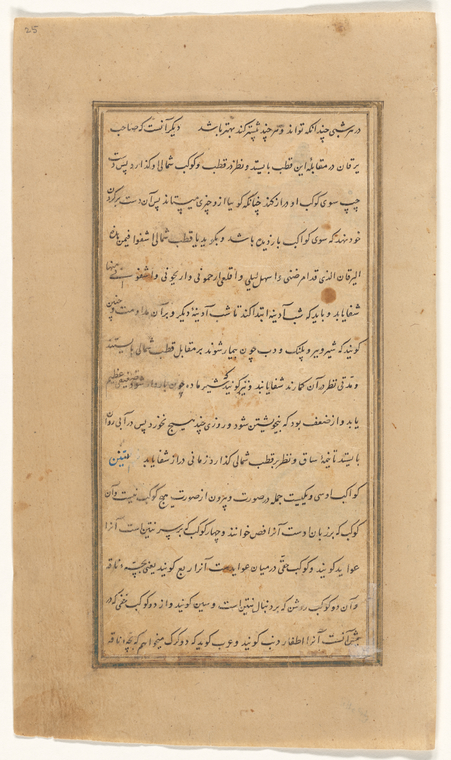 25
در هر شبی چندانکه تواند و هر چند بیشتر کند بهتر باشد دیگر آنست که صاحب
یرقان در مقابله این قطب بایستد و نظر در قطب و کوکب شمالی گذارد پس دست
چپ سوی کوکب او دراز کند چنانکه گویا ازو چیزی میستاند پس آن دست بر گردن
خود نهد که سوی کواکب باز دید باشد و بگوید یا قطب شمالی اشفوا فیمن
الیرقان الذی قد امرضنی و اسهل لیلی و اقلع
شفا یابد و باید که شب آدینه ابتدا کند تا شب آدینهٔ دیگر و بر آن مداومت و چنین
گویند که شیر و ببر و پلنگ و دب چون بیمار شوند بر مقابل قطب شمالی بایستند
و مدتی نظر در آن گمارند شفا یابند و نیز گویند که شیر ماده چون باردار شود ضعفی عظیم
یابد و از ضعف بود که بیخویشتن شود و روزی چند هیچ نخورد پس در آبی روان
بایستد تا نیمهٔ ساق و نظر بر قطب شمالی گذارد زمانی دراز شفا یابد التنین
کواکب او سی و یکیست جمله در صورت و بیرون از صورت هیچ کوکب نیست و آن
کوکب که بر زبان اوست آنرا خوانند و چهار کوکب که بر سر تنین است آنرا
عواید گویند و کوکب خفی در میان عوایدست آنرا ربع گویند یعنی بچه ناقه
و آن دو کوکب روشن که بر دنبال تنین است و گویند و از دو کوکب خفی که در
پیش آنست آنرا اظفار ذئب گویند و عرب گوید که دو گرگ میخواهم که بچه ناقه